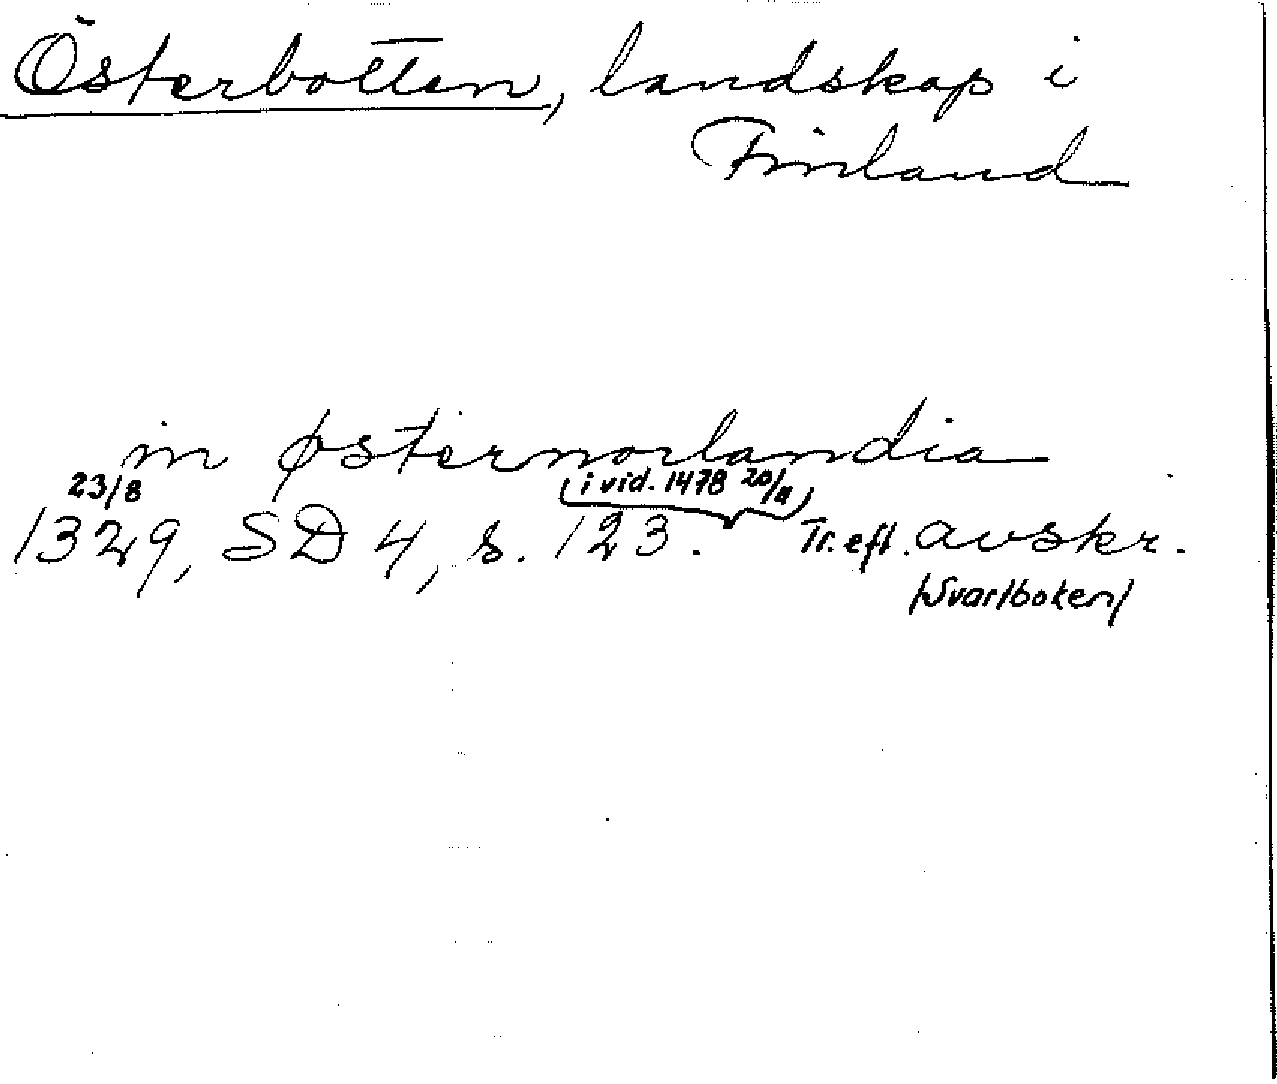 Österbotten, landskap i
Finland
in østernorlandia
23/8 (i vid. 1478 20/11)
1329, SD 4, s. 123. Tr. eft. avskr.
/Svartboken/